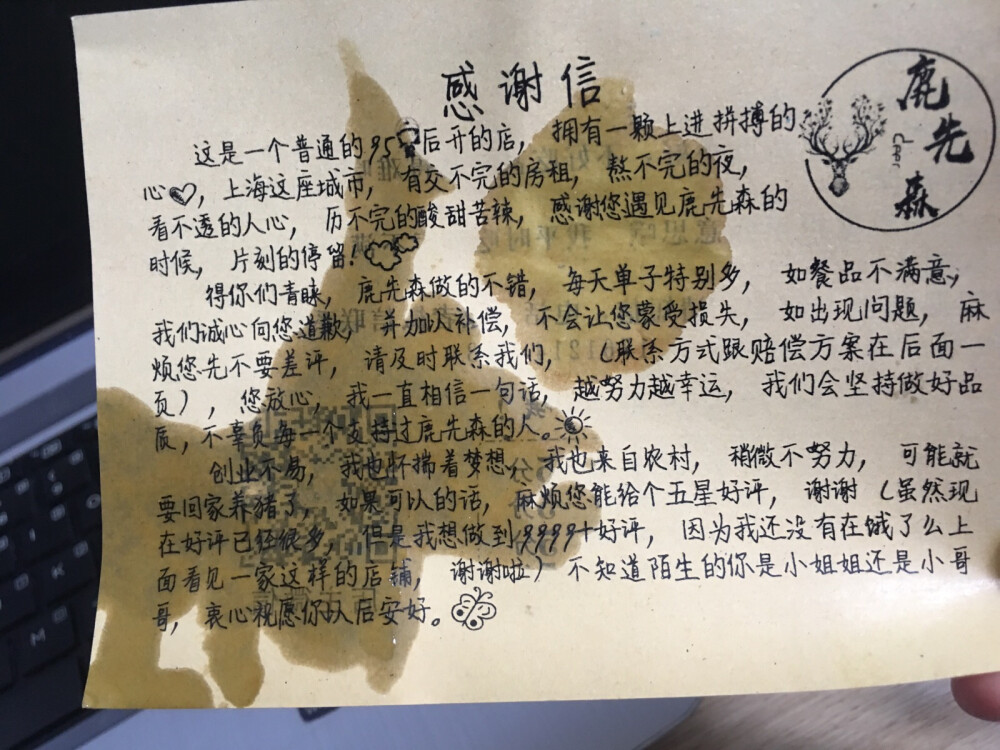 感谢信
鹿先森
这是一个普通的95后开的店，拥有一颗上进拼搏的
心，上海这座城市，有交不完的房租，熬不完的夜，
看不透的人心，历不完的酸甜苦辣，感谢您遇见鹿先森的
时候，片刻的停留！
得你们青睐，鹿先森做的不错，每天单子特别多，如餐品不满意，
我们诚心向您道歉，并加以补偿，不会让您蒙受损失，如出现问题，麻
烦您先不要差评，请及时联系我们，（联系方式跟赔偿方案在后面一
页），您放心，我一直相信一句话，越努力越幸运，我们会坚持做好品
质，不辜负每一个支持过鹿先森的人。
创业不易，我也怀揣着梦想，我也来自农村，稍微不努力，可能就
要回家养猪了，如果可以的话，麻烦您能给个五星好评，谢谢（虽然现
在好评已经很多，但是我想做到9999+好评，因为我还没有在饿了么上
面看见一家这样的店铺，谢谢啦）不知道陌生的你是小姐姐还是小哥
哥，衷心祝愿你以后安好。